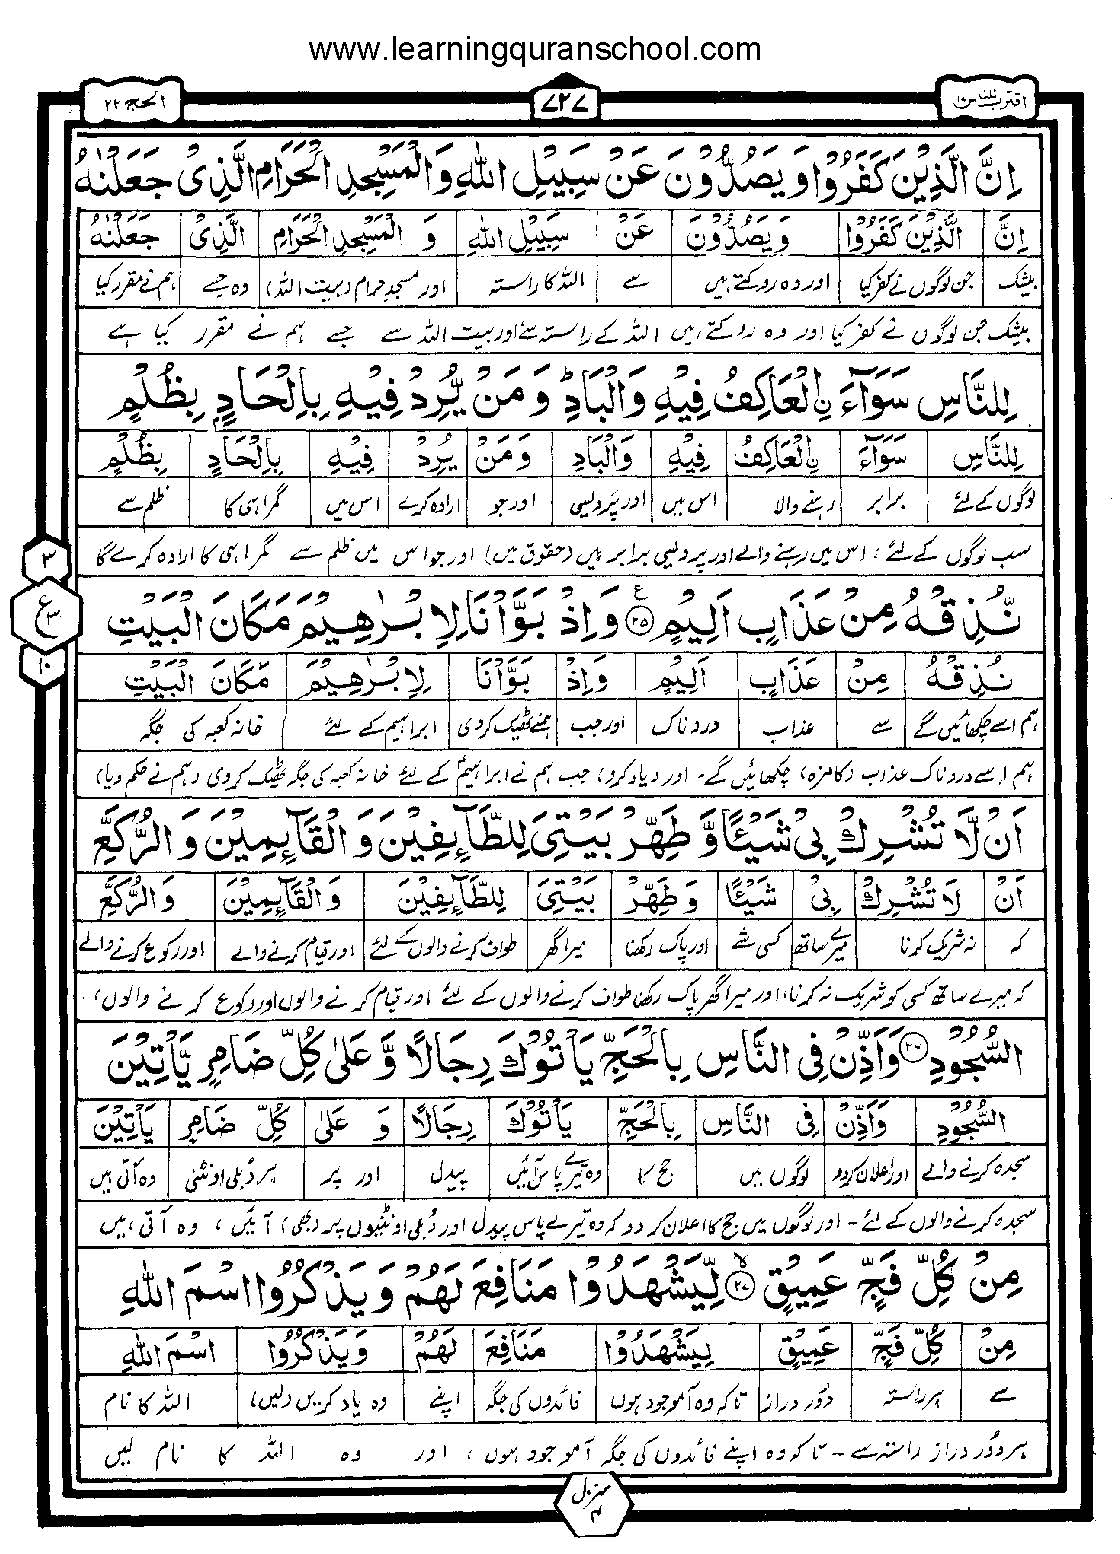 www.learningquranschool.com
اقترب للناس ۱۷ ۷۲۷ الحج ۲۲
اِنَّ الَّذِيْنَ كَفَرُوْا وَيَصُدُّوْنَ عَنْ سَبِيْلِ اللّٰهِ وَالْمَسْجِدِ الْحَرَامِ الَّذِيْ جَعَلْنٰهُ
اِنَّ الَّذِيْنَ كَفَرُوْا وَيَصُدُّوْنَ عَنْ سَبِيْلِ اللّٰهِ وَ الْمَسْجِدِ الْحَرَامِ الَّذِيْ جَعَلْنٰهُ
بیشک جن لوگوں نے کفر کیا اور وہ روکتے ہیں سے اللہ کا راستہ اور مسجد حرام (بیت اللہ) وہ جسے ہم نے مقرر کیا
بیشک جن لوگوں نے کفر کیا اور وہ روکتے ہیں اللہ کے راستہ سے اور بیت اللہ سے جسے ہم نے مقرر کیا ہے
لِلنَّاسِ سَوَآءَ ۨالْعَاكِفُ فِيْهِ وَالْبَادِ ؕ وَمَنْ يُّرِدْ فِيْهِ بِاِلْحَادٍۭ بِظُلْمٍ
لِلنَّاسِ سَوَآءَ ۨالْعَاكِفُ فِيْهِ وَالْبَادِ وَمَنْ يُرِدْ فِيْهِ بِاِلْحَادٍ بِظُلْمٍ
لوگوں کے لئے برابر رہنے والا اس میں اور پردیسی اور جو ارادہ کرے اس میں گمراہی کا ظلم سے
سب لوگوں کے لئے، اس میں رہنے والے اور پردیسی برابر ہیں (حقوق میں) اور جو اس میں ظلم سے گمراہی کا ارادہ کرے گا
۳
ع ۳
۱۰
نُّذِقْهُ مِنْ عَذَابٍ اَلِيْمٍ ۲۵ ع وَاِذْ بَوَّاْنَا لِاِبْرٰهِيْمَ مَكَانَ الْبَيْتِ
نُذِقْهُ مِنْ عَذَابٍ اَلِيْمٍ وَاِذْ بَوَّاْنَا لِاِبْرٰهِيْمَ مَكَانَ الْبَيْتِ
ہم اسے چکھائیں گے سے عذاب دردناک اور جب ہم نے ٹھیک کر دی ابراہیم کے لئے خانہ کعبہ کی جگہ
ہم اسے دردناک عذاب (کا مزہ) چکھائیں گے۔ اور (یاد کرو) جب ہم نے ابراہیمؑ کے لئے خانہ کعبہ کی جگہ ٹھیک کر دی (ہم نے حکم دیا)
اَنْ لَّا تُشْرِكْ بِيْ شَيْـًٔا وَّ طَهِّرْ بَيْتِيَ لِلطَّآىِٕفِيْنَ وَ الْقَآىِٕمِيْنَ وَ الرُّكَّعِ
اَنْ لَا تُشْرِكْ بِيْ شَيْـًٔا وَ طَهِّرْ بَيْتِيَ لِلطَّآىِٕفِيْنَ وَ الْقَآىِٕمِيْنَ وَالرُّكَّعِ
کہ نہ شریک کرنا میرے ساتھ کسی شے اور پاک رکھنا میرا گھر طواف کرنے والوں کے لئے اور قیام کرنے والے اور رکوع کرنے والے
کہ میرے ساتھ کسی کو شریک نہ کرنا، اور میرا گھر پاک رکھنا طواف کرنے والوں کے لئے اور قیام کرنے والوں اور رکوع کرنے والوں،
السُّجُوْدِ ۲۶ وَاَذِّنْ فِي النَّاسِ بِالْحَجِّ يَاْتُوْكَ رِجَالًا وَّ عَلٰى كُلِّ ضَامِرٍ يَّاْتِيْنَ
السُّجُوْدِ وَاَذِّنْ فِي النَّاسِ بِالْحَجِّ يَاْتُوْكَ رِجَالًا وَ عَلٰى كُلِّ ضَامِرٍ يَاْتِيْنَ
سجدہ کرنے والے اور اعلان کر دو لوگوں میں حج کا وہ تیرے پاس آئیں پیدل اور پر ہر دُبلی اونٹنی وہ آتی ہیں
سجدہ کرنے والوں کے لئے۔ اور لوگوں میں حج کا اعلان کر دو کہ وہ تیرے پاس پیدل اور دُبلی اونٹنیوں پر (بھی) آئیں، وہ آتی ہیں
مِنْ كُلِّ فَجٍّ عَمِيْقٍ ۲۷ لِّيَشْهَدُوْا مَنَافِعَ لَهُمْ وَيَذْكُرُوا اسْمَ اللّٰهِ
مِنْ كُلِّ فَجٍّ عَمِيْقٍ لِيَشْهَدُوْا مَنَافِعَ لَهُمْ وَيَذْكُرُوا اسْمَ اللّٰهِ
سے ہر راستہ دُور دراز تاکہ وہ آموجود ہوں فائدوں کی جگہ اپنے وہ یاد کریں (لیں) اللہ کا نام
ہر دُور دراز راستہ سے۔ تاکہ وہ اپنے فائدوں کی جگہ آموجود ہوں، اور وہ اللہ کا نام لیں
منزل ۴